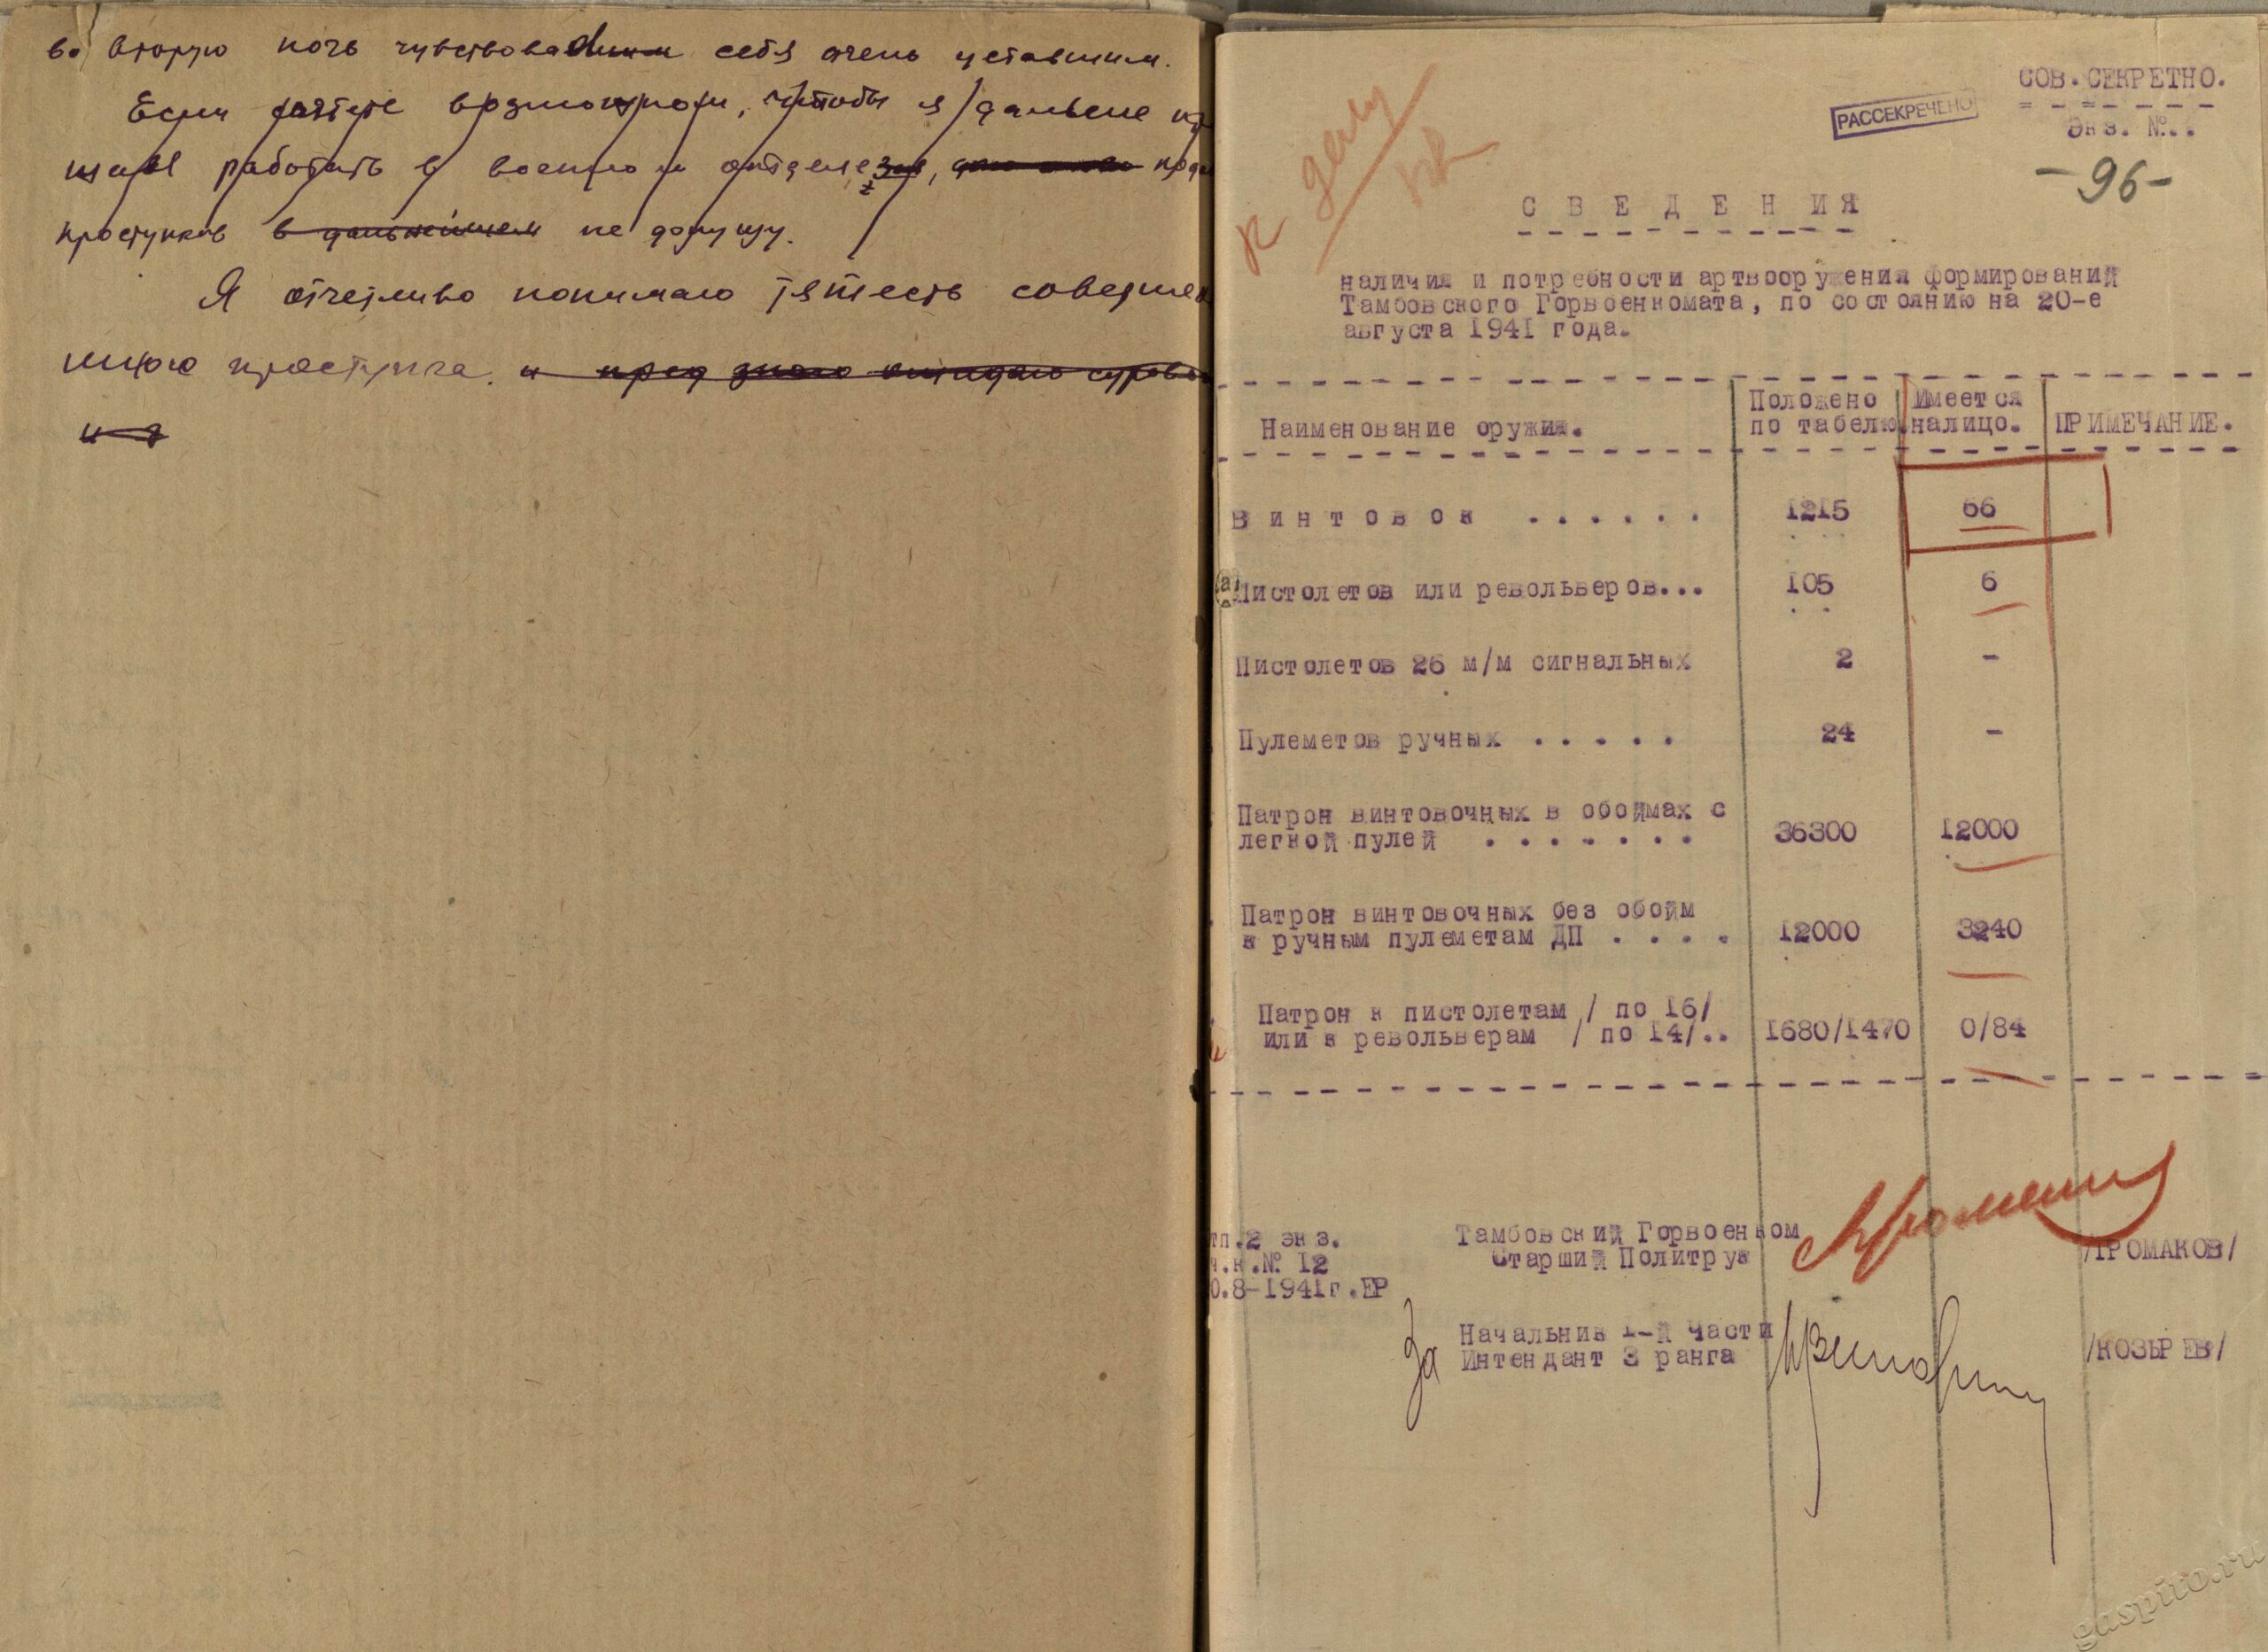 во вторую ночь чувствовал себя очень уставшим.
Если найдете возможным, чтобы я дальше
работать в военном отделе
проступков в дальнейшем не допущу.
Я отчетливо понимаю тяжесть совершен
ного проступка. и
и я
СОВ.СЕКРЕТНО.
РАССЕКРЕЧЕНО
Экз. №..
-96-
к делу
С В Е Д Е Н И Я
наличия и потребности артвооружения формирований
Тамбовского Горвоенкомата, по состоянию на 20-е
августа 1941 года.
Наименование оружия. Положено по табелю Имеется налицо. ПРИМЕЧАНИЕ.
В и н т о в о к ...... 1215 66
Пистолетов или револьверов... 105 6
Пистолетов 26 м/м сигнальных 2 -
Пулеметов ручных ..... 24 -
Патрон винтовочных в обоймах с
легкой пулей ....... 36300 12000
Патрон винтовочных без обойм
к ручным пулеметам ДП .... 12000 3240
Патрон к пистолетам / по 16/
или к револьверам / по 14/.. 1680/1470 0/84
тп.2 экз.
ч.н.№ 12
0.8-1941г.ЕР
Тамбовский Горвоенком
Старший Политрук /ГРОМАКОВ/
За Начальник 1-й части
Интендант 3 ранга /КОЗЫРЕВ/
gaspito.ru